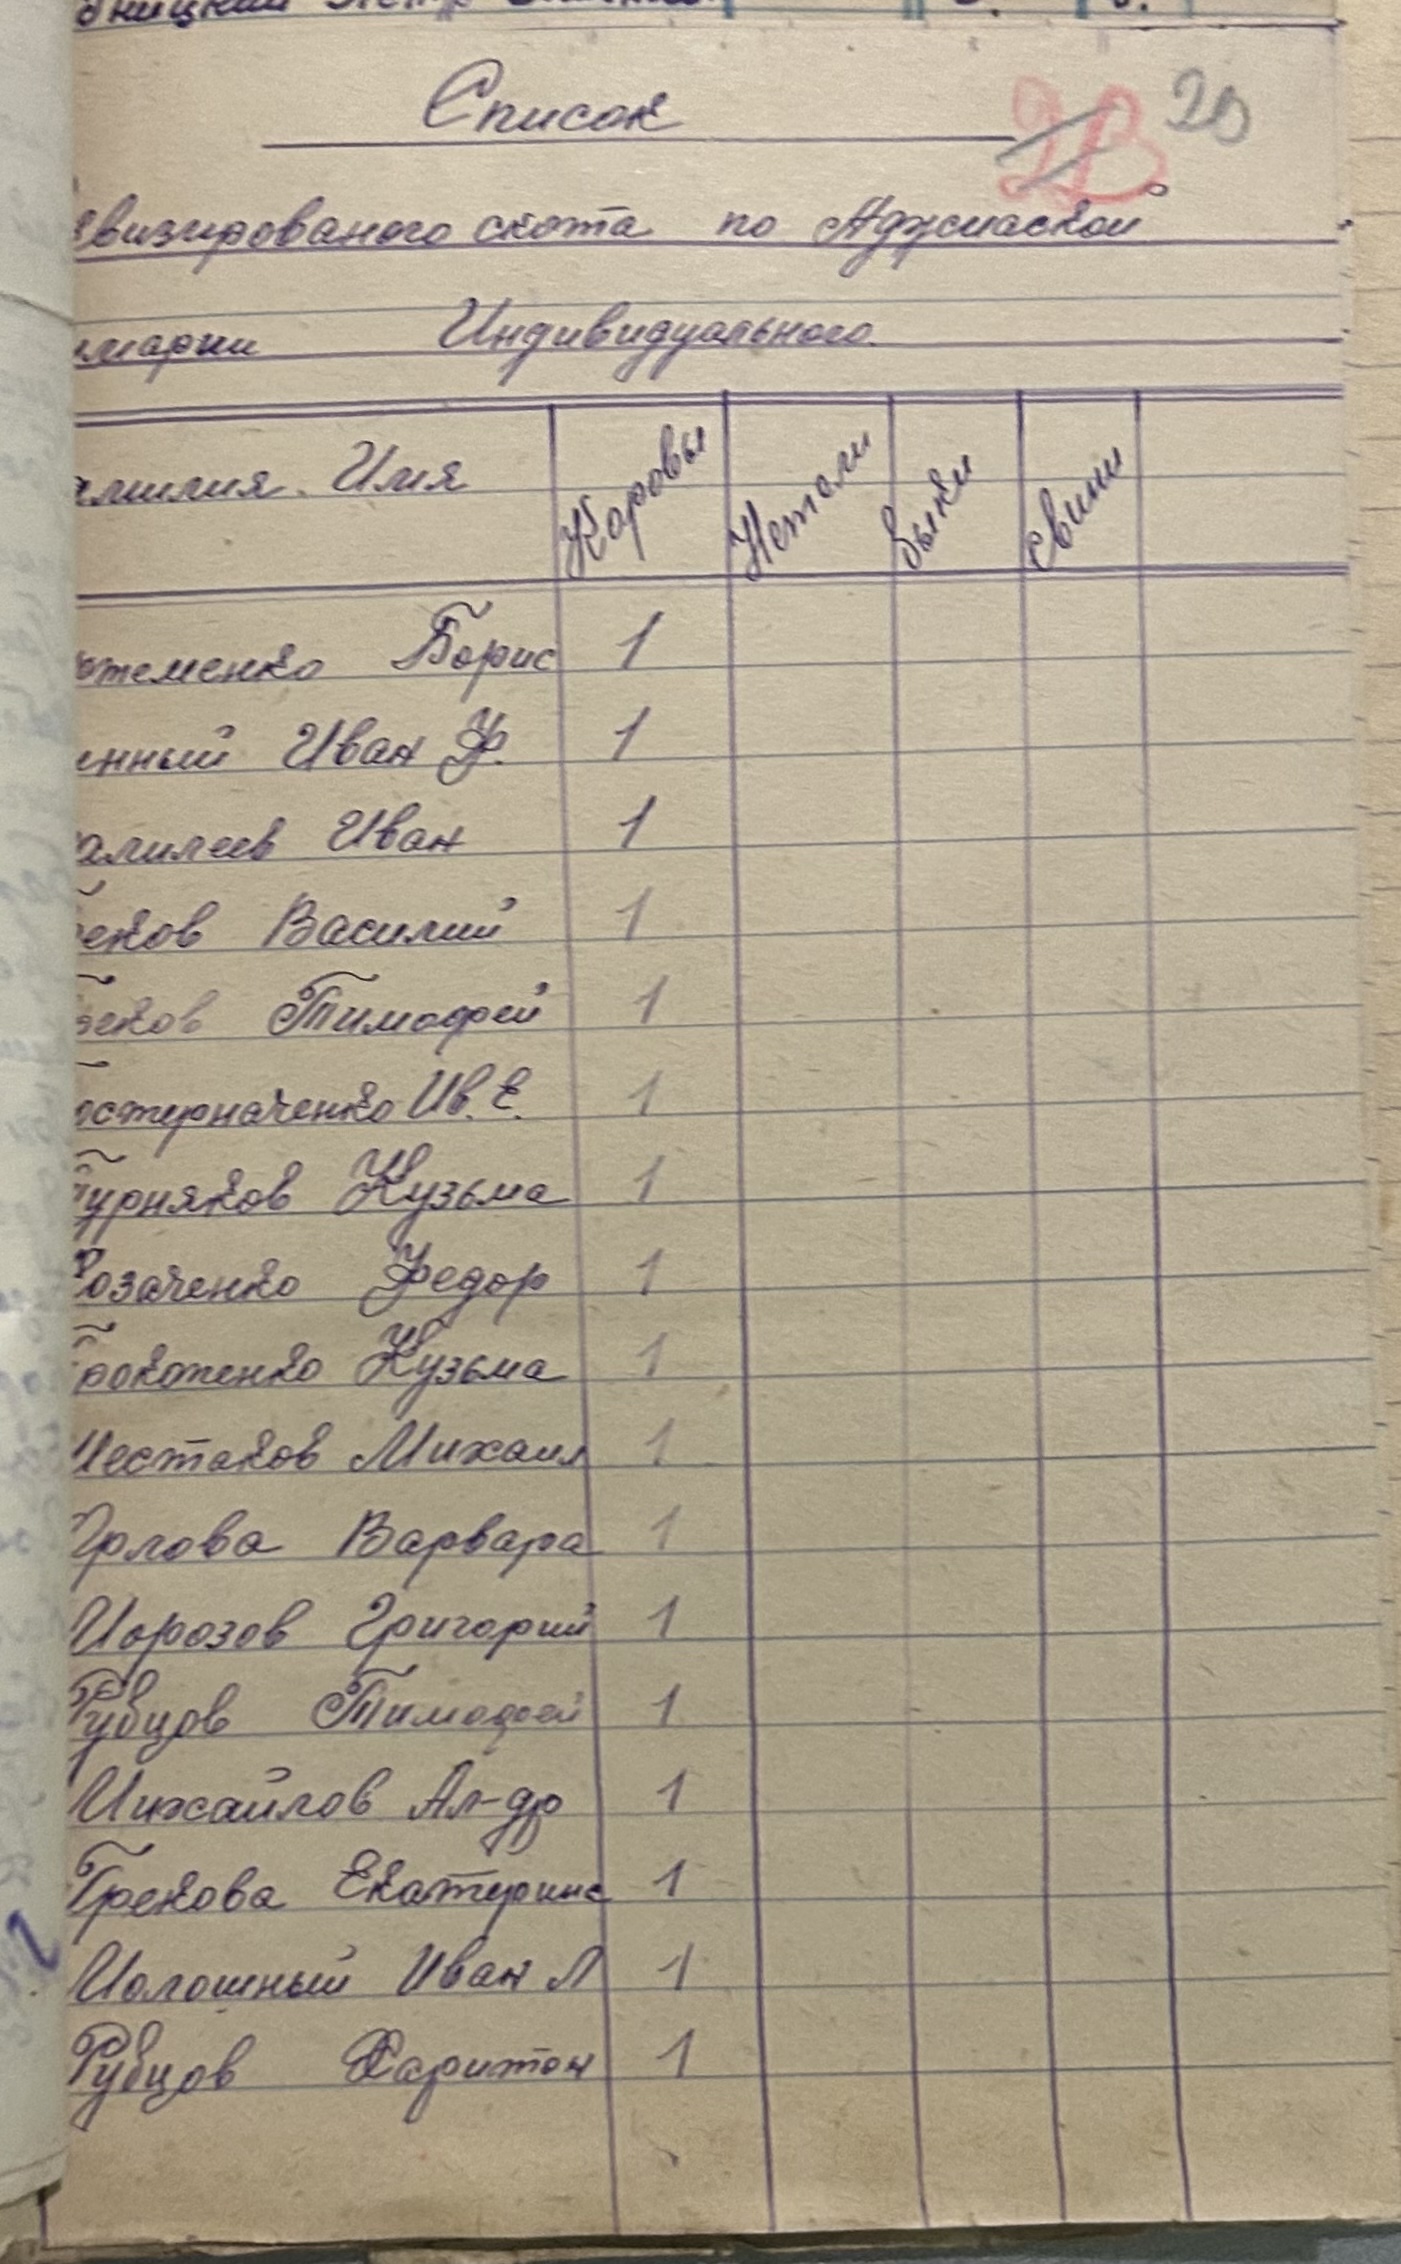 Список
28 20
евизированого скота по Аджиаской
имарии Индивидуального
амилия. Имя Коровы Нетели Быки свиньи
ртеменко Борис 1
инный Иван Ф. 1
алилеев Иван 1
реков Василий 1
реков Тимофей 1
остерначенко Ив. Е. 1
Бурняков Кузьма 1
Козаченко Федор 1
рокотенко Кузьма 1
Шестаков Михаил 1
Орлова Варвара 1
Морозов Григорий 1
Рубцов Тимофей 1
Михайлов Ал-др 1
Грекова Екатерина 1
Молошный Иван Л 1
Рубцов Харитон 1